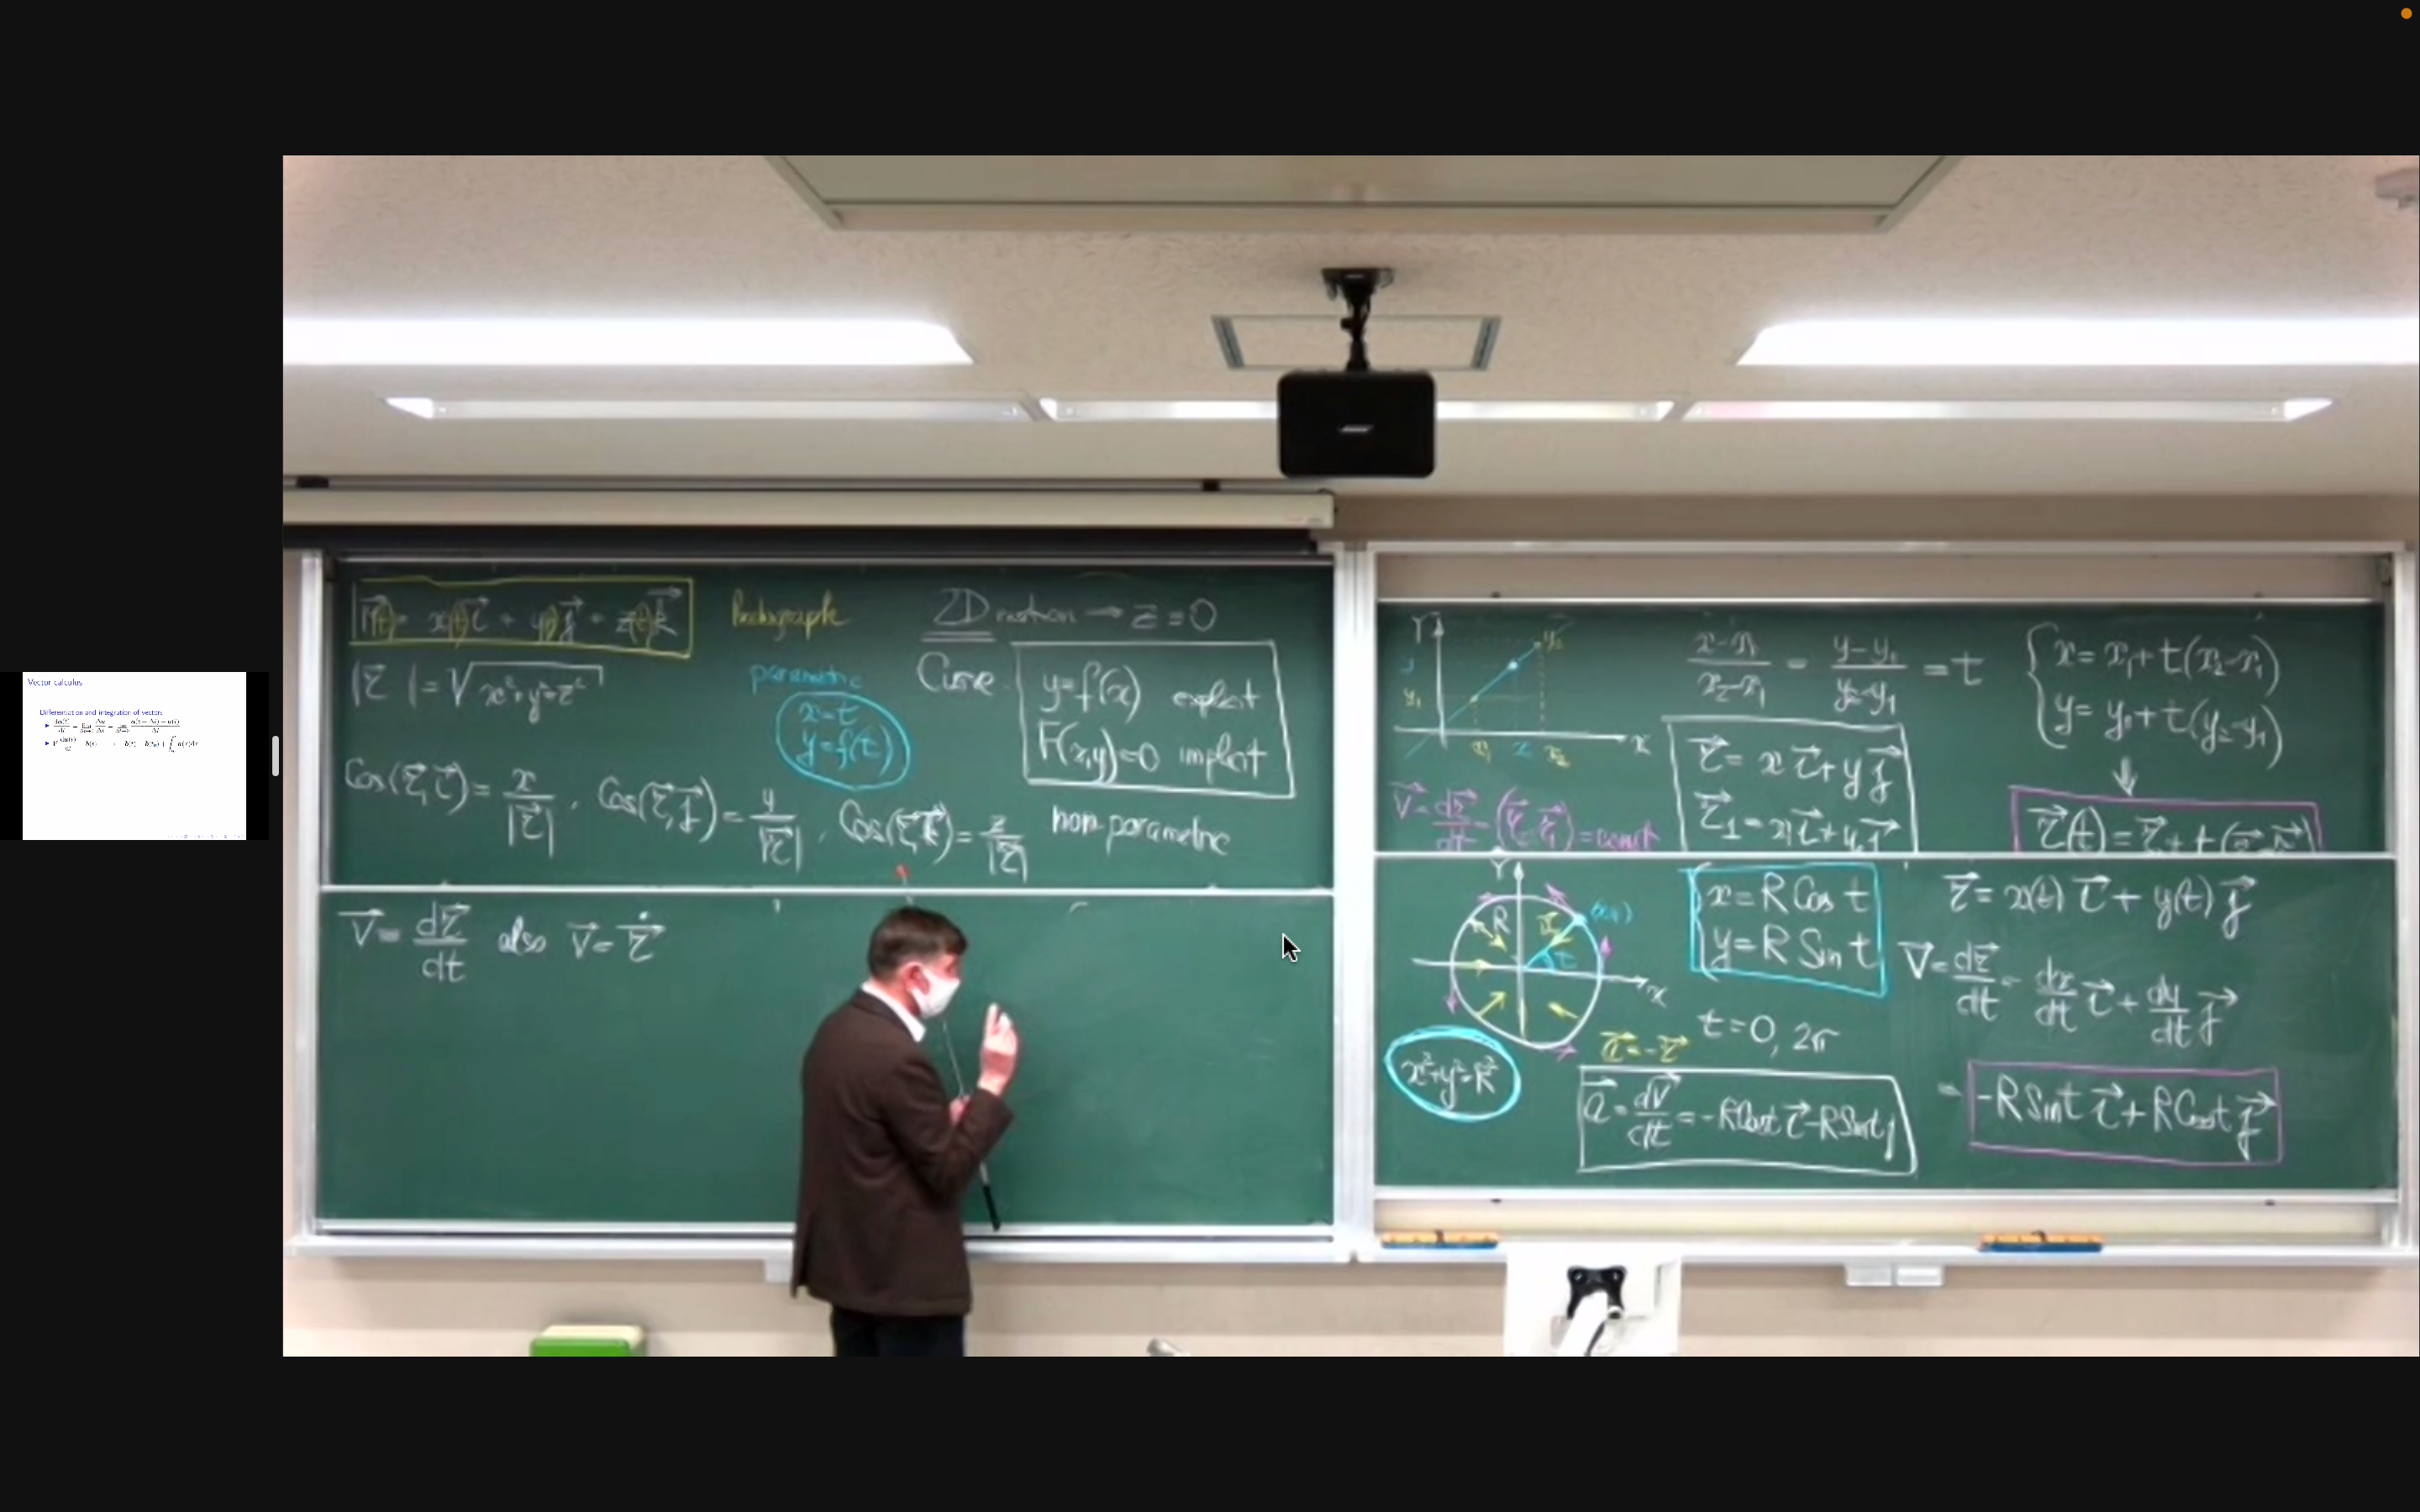 Vector calculus
Differentiation and integration of vectors
r⃗(t) = x(t)i⃗ + y(t)j⃗ + z(t)k⃗
hodograph
2D motion → z = 0
|r⃗| = √x²+y²+z²
parametric
x=t
y=f(t)
Curve
y=f(x) explicit
F(x,y)=0 implicit
Cos(r⃗,i⃗) = x/|r⃗| , Cos(r⃗,j⃗) = y/|r⃗| , Cos(r⃗,k⃗) = z/|r⃗|
non-parametric
V⃗ = dr⃗/dt also V⃗ = ṙ⃗
Y
y₂
y
y₁
x₁ x x₂
x
(x-x₁)/(x₂-x₁) = (y-y₁)/(y₂-y₁) = t
x = x₁+t(x₂-x₁)
y = y₁+t(y₂-y₁)
r⃗ = x i⃗ + y j⃗
r⃗₁ = x₁i⃗ + y₁j⃗
V⃗ = dr⃗/dt = (r⃗₂-r⃗₁) = const
r⃗(t) = r⃗₁ + t(r⃗₂-r⃗₁)
Y
R
r⃗
(x,y)
t
x
x = R Cos t
y = R Sin t
t = 0, 2π
x²+y²=R²
a⃗ = -r⃗
a⃗ = dV⃗/dt = -RCost i⃗ - RSint j⃗
r⃗ = x(t) i⃗ + y(t) j⃗
V⃗ = dr⃗/dt = dx/dt i⃗ + dy/dt j⃗
= -RSint i⃗ + RCost j⃗